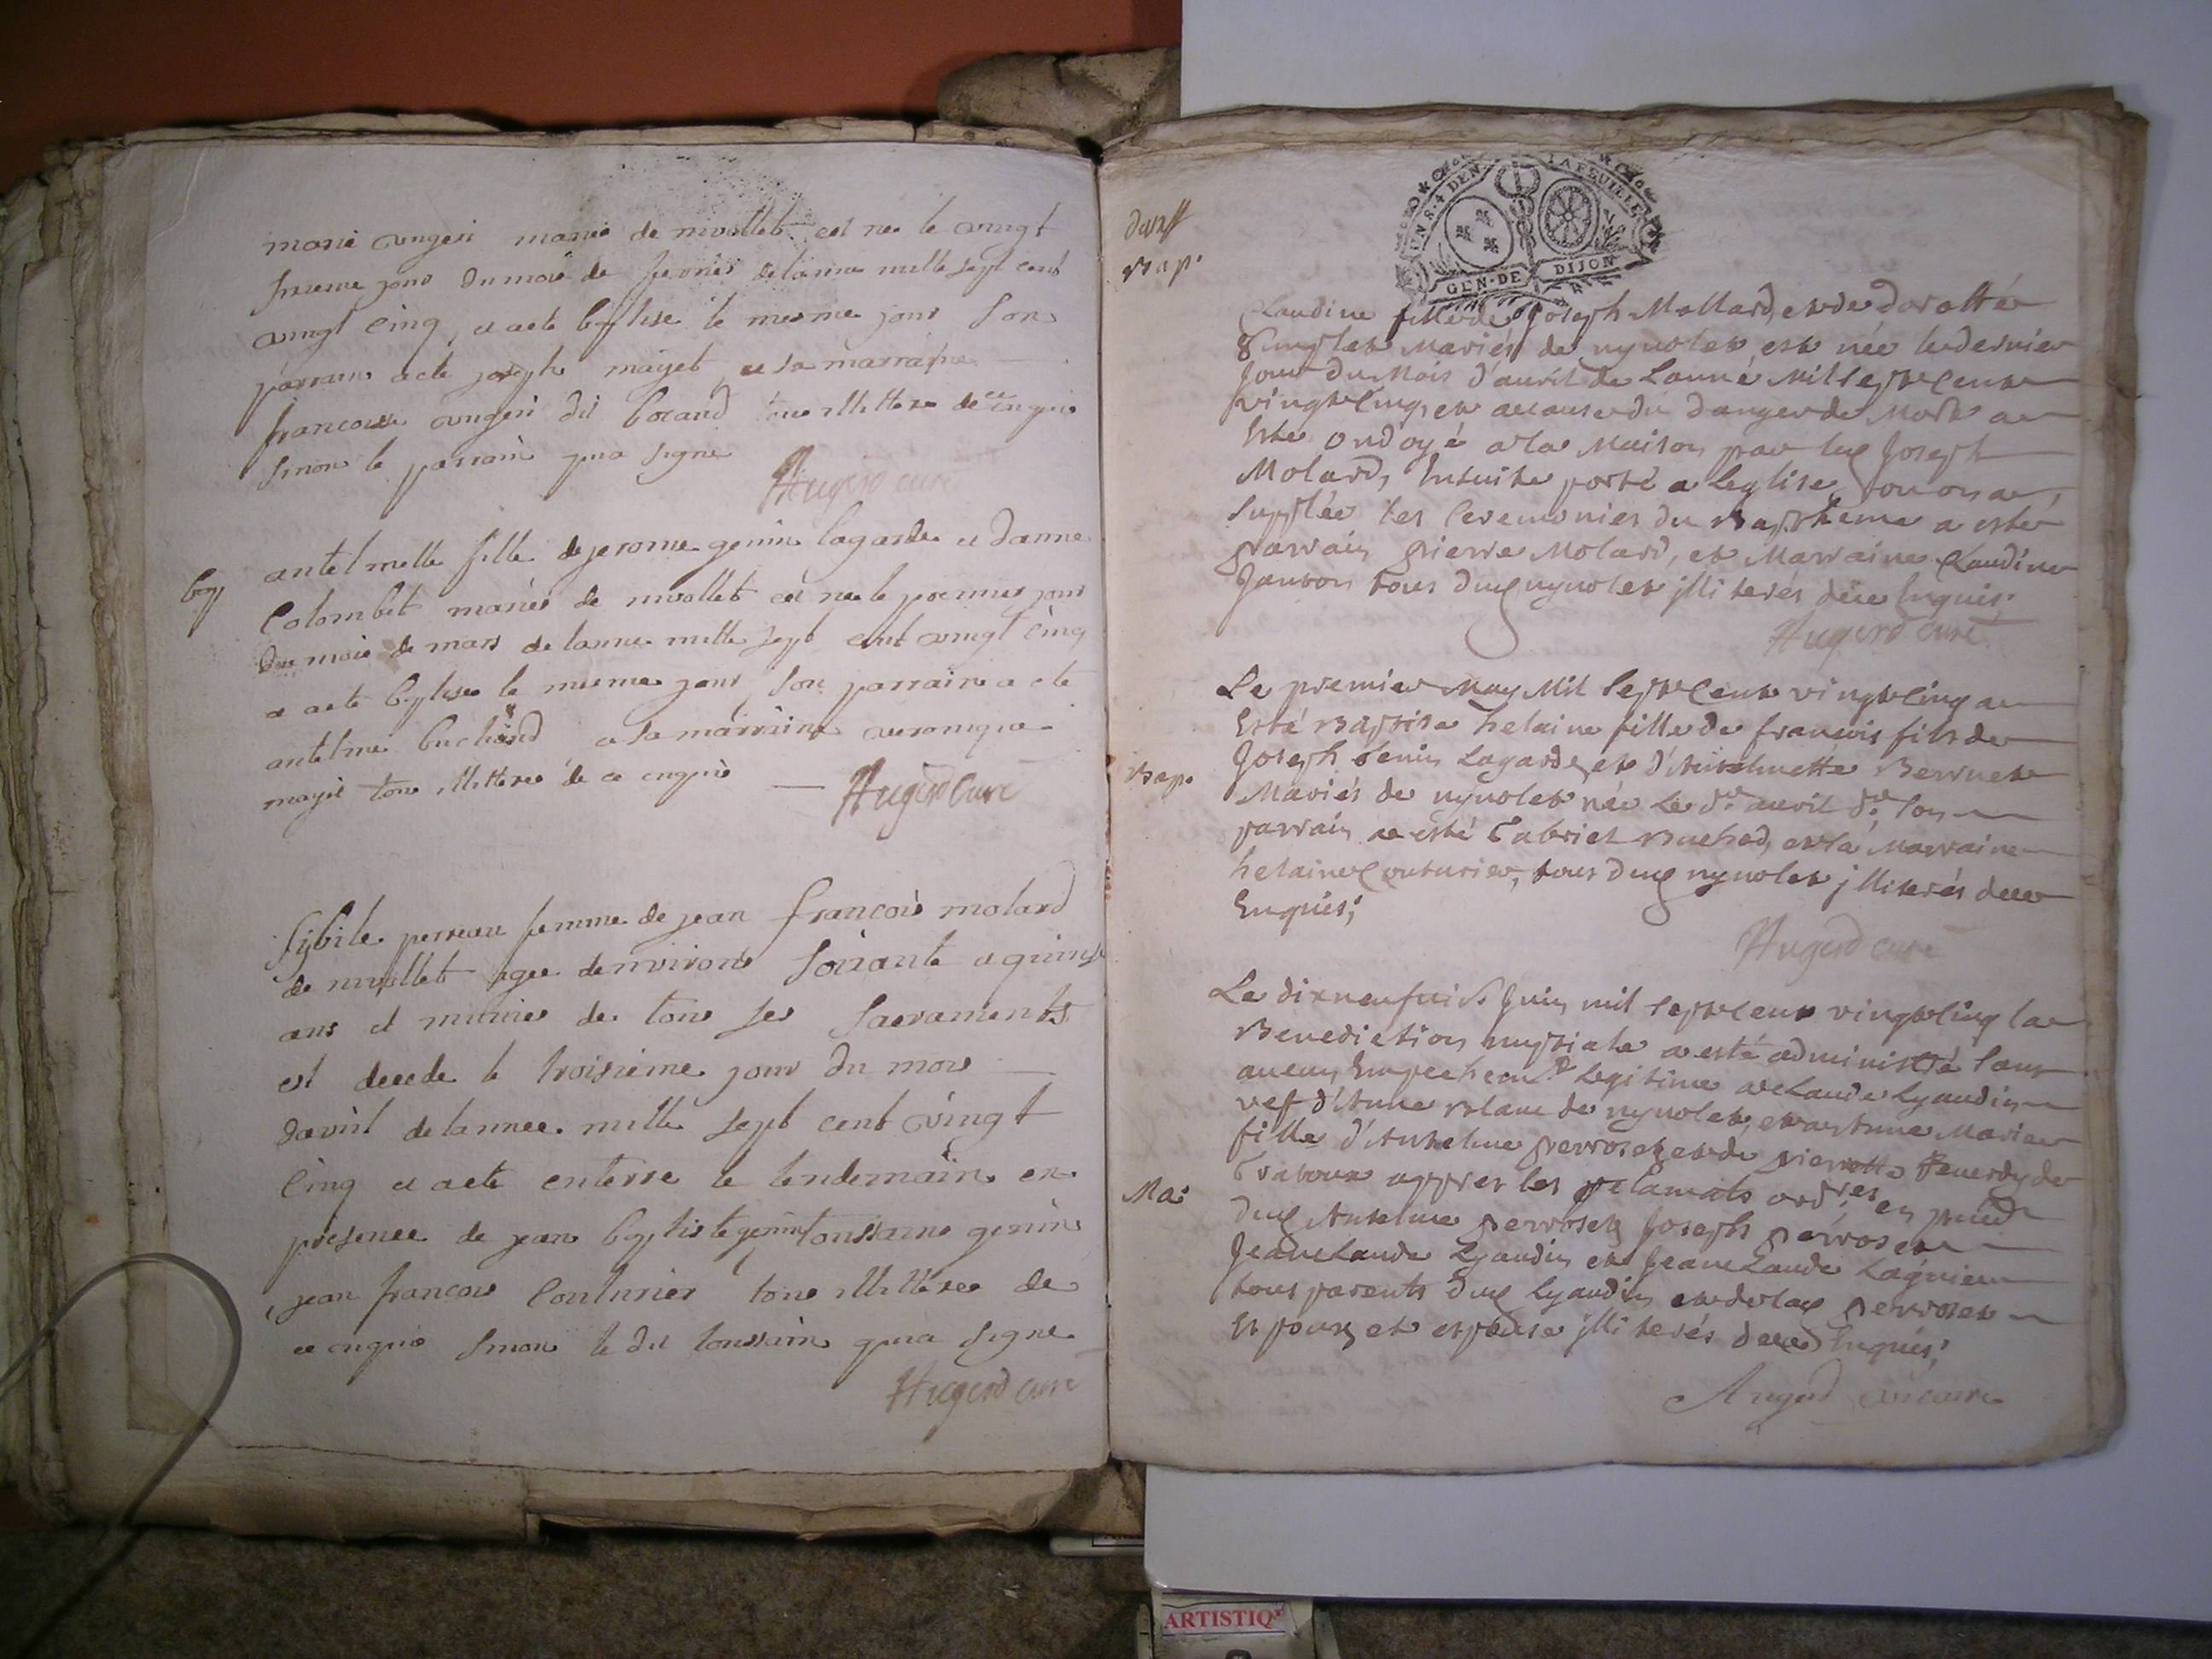 marie de nivollet est nee le vingt
jour du mois de fevrier de lanne mille sept cent
vingt cinq et a ete baptise le mesme jour son
parrain a ete joseph mayet et sa marraine
francoise dit tous illitere de ce enquis
sinon le parrain qui a signe
Hugerd curé
bap
antelmette fille de jerome genin lagarde et danne
Colombet mariés de nivollet est nee le premier jour
du mois de mars de lanne mille sept cent vingt cinq
a ete baptise le mesme jour son parrain a ete
antelme et sa marraine veronique
mayet tous illitere de ce enquis
Hugerd Curé
Sybile femme de jean françois molard
de nivollet agee denviron soixante et quinze
ans et munie de tous ses Sacraments
est decede le troisieme jour du mois
davril de lannee mille sept cent vingt
Cinq et a ete enterre le lendemain en
presence de jean baptiste genin toussaint genin
jean francois Couturier tous illitere de
ce enquis sinon le dit toussaint qui a signe
Hugerd curé
GEN·DE DIJON
LA FEUILLE
UN S·4 DEN
Bap.
Claudine fille de Joseph Mollard, et de dorottée
mariés de nyvolet est née le dernier
jour du Mois d'auril de Lanné Mil sept Cent
vingt cinq, et a cause du danger de Mort a
Esté ondoyé a la Maison par led Joseph
Molard, Ensuite porté a Leglise, ou on a
supplée les Ceremonies du Baptheme a esté
parrain pierre Molard, et Marraine Claudine
Janton tous dud nyvolet jlliterés de ce Enquis;
Hugerd Curé
Le premier May Mil sept Cent vingt cinq a
Esté Baptisé helaine fille de francois fils de
Bap.
Joseph Genin Lagarde, et d'Antelmette Berruet
Mariés de nyvolet née Le d.e auril d.e son
parrain a esté Gabriel Buchod, et la Marraine
helaine Couturier, tous dud nyvolet jlliterés de ce
Enquis;
Hugerd curé
Le dixneufuie Juin mil sept Cent vingt cinq la
Benediction nuptiale a esté administré sans
aucun Empechem.t legitime a Claude Lyaudin
vef d'Anne Blanc de nyvolet, et a Anne Marie
fille d'Antelme perroset et de pierrotte de
apprez les proclamats ord.res en
Ma:
dud Antelme perroset Joseph perroset
Jean Claude Lyaudin et Jean Claude Lagnieu
tous parents dud Lyaudin et de lad perroset
Epoux et espouse jlliterés de ce Enquis;
Hugerd vicaire
ARTISTIQ